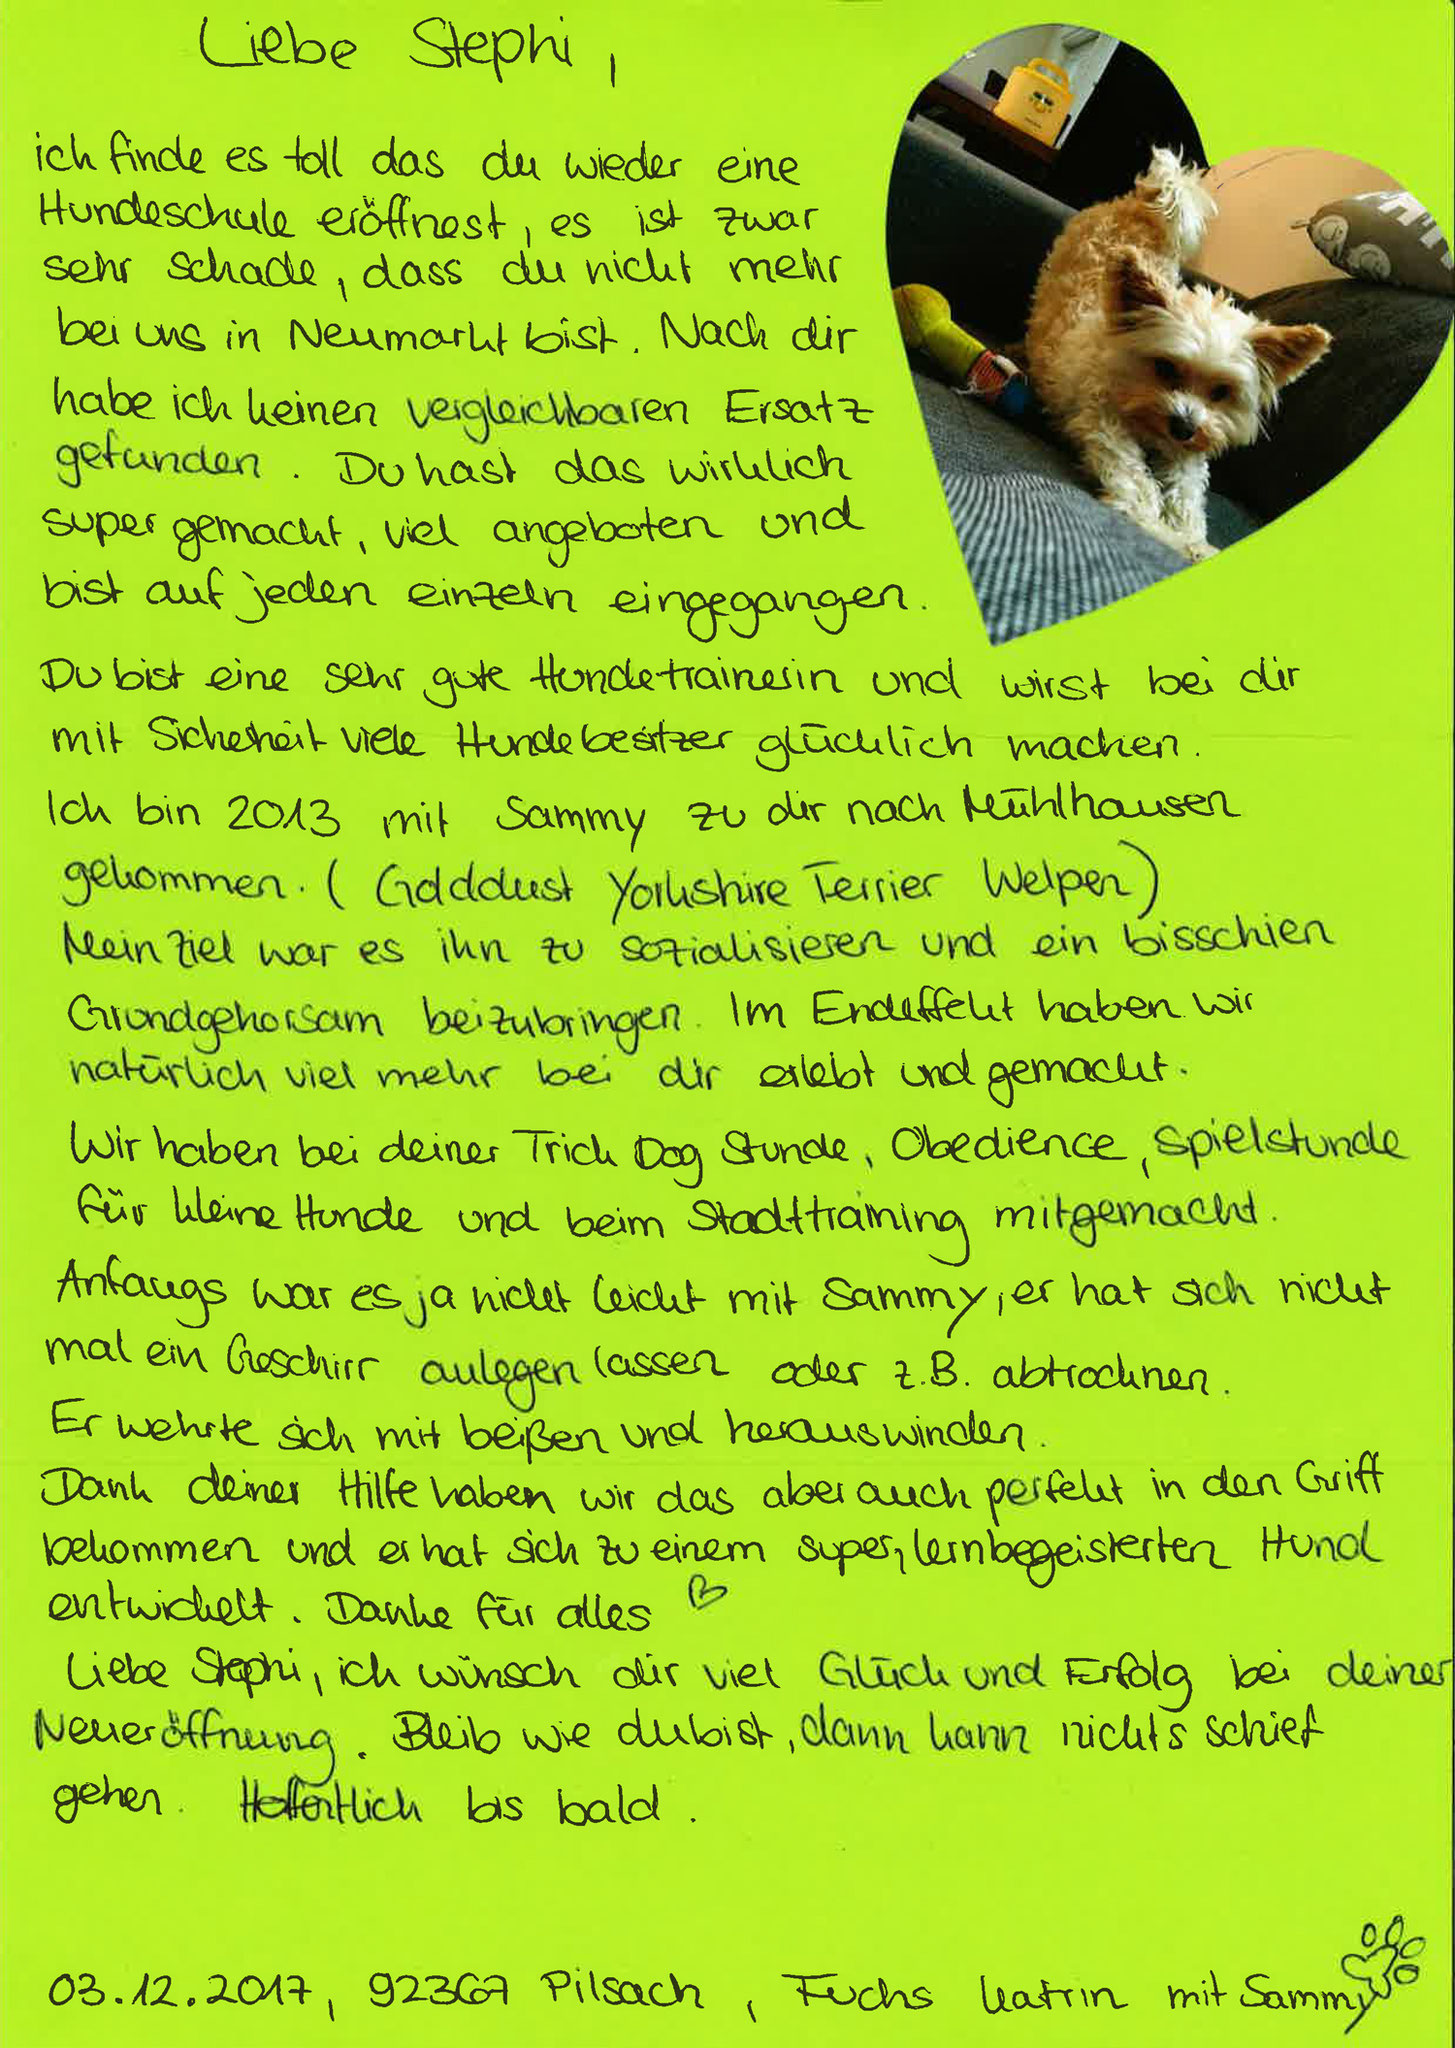 Liebe Stephi,
ich finde es toll das du wieder eine
Hundeschule eröffnest, es ist zwar
sehr schade, dass du nicht mehr
bei uns in Neumarkt bist. Nach dir
habe ich keinen vergleichbaren Ersatz
gefunden. Du hast das wirklich
super gemacht, viel angeboten und
bist auf jeden einzeln eingegangen.
Du bist eine sehr gute Hundetrainerin und wirst bei dir
mit Sicherheit viele Hundebesitzer glücklich machen.
Ich bin 2013 mit Sammy zu dir nach Mühlhausen
gekommen. (Golddust Yorkshire Terrier Welpen)
Mein Ziel war es ihn zu sozialisieren und ein bisschien
Grundgehorsam beizubringen. Im Endeffekt haben wir
natürlich viel mehr bei dir erlebt und gemacht.
Wir haben bei deiner Trick Dog Stunde, Obedience, Spielstunde
für kleine Hunde und beim Stadttraining mitgemacht.
Anfangs war es ja nicht leicht mit Sammy, er hat sich nicht
mal ein Geschirr anlegen lassen oder z.B. abtrocknen.
Er wehrte sich mit beißen und herauswinden.
Dank deiner Hilfe haben wir das aber auch perfekt in den Griff
bekommen und er hat sich zu einem super, lernbegeisterten Hund
entwickelt. Danke für alles
Liebe Stephi, ich wünsch dir viel Glück und Erfolg bei deiner
Neueröffnung. Bleib wie du bist, dann kann nichts schief
gehen. Hoffentlich bis bald.
03.12.2017, 92367 Pilsach, Fuchs Katrin mit Sammy